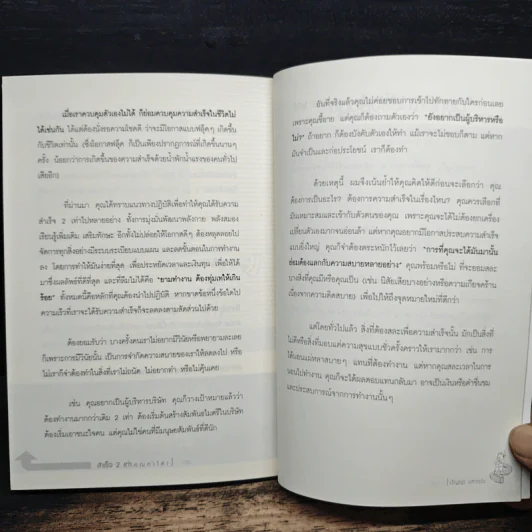 เมื่อเราควบคุมตัวเองไม่ได้ ก็ย่อมควบคุมความสำเร็จในชีวิตไม่
ได้เช่นกัน ได้แต่ต้องนั่งรอความโชคดี ว่าจะมีโอกาสแบบฟลุ้คๆ เกิดขึ้น
กับชีวิตเท่านั้น ซึ่งโอกาสฟลุ้ค ก็เป็นเพียงปรากฏการณ์ที่เกิดขึ้นนานๆ
ครั้ง น้อยกว่าการเกิดขึ้นของความสำเร็จด้วยน้ำพักน้ำแรงของคนทั่วไป
เสียอีก
ที่ผ่านมา คุณได้ทราบแนวทางปฏิบัติเพื่อทำให้คุณได้รับความ
สำเร็จ 2 เท่าไปหลายอย่าง ทั้งการมุ่งมั่นพัฒนาพลังกาย พลังสมอง
เรียนรู้เพิ่มเติม เสริมทักษะ อีกทั้งไม่ปล่อยให้โอกาสดีๆ ต้องหลุดลอยไป
จัดการทุกสิ่งอย่างมีระบบระเบียบแบบแผน และลดขั้นตอนในการทำงาน
ลง โดยการทำให้มันง่ายที่สุด เพื่อประหยัดเวลาและเงินทุน เพื่อให้ได้
มาซึ่งผลลัพธ์ที่ดีที่สุด และที่ลืมไม่ได้คือ "ยามทำงาน ต้องทุ่มเทให้เกิน
ร้อย" ทั้งหมดนี้คือหลักที่คุณต้องนำไปปฏิบัติ หากขาดข้อหนึ่งข้อใดไป
ความเร็วที่เราจะได้รับความสำเร็จก็จะลดลงตามสัดส่วนไปด้วย
ต้องยอมรับว่า บางครั้งคนเราไม่อยากมีวินัยหรือพยายามละเลย
ก็เพราะการมีวินัยนั้น เป็นการจำกัดความสบายของเราให้ลดลงไป หรือ
ไม่เราก็จำต้องทำในสิ่งที่เราไม่ถนัด ไม่อยากทำ หรือไม่คุ้นเคย
เช่น คุณอยากเป็นผู้บริหารบริษัท คุณก็วางเป้าหมายแล้วว่า
ต้องทำงานมากกว่าเดิม 2 เท่า ต้องเริ่มต้นสร้างสัมพันธไมตรีในบริษัท
ต้องเริ่มเอาชนะใจคน แต่คุณไม่ใช่คนที่มีมนุษยสัมพันธ์ที่ดีนัก
สำเร็จ 2 เท่า
อันที่จริงแล้วคุณไม่ค่อยชอบการเข้าไปทักทายกับใครก่อนเลย
เพราะคุณขี้อาย แต่คุณก็ต้องถามตัวเองว่า "ยังอยากเป็นผู้บริหารหรือ
ไม่?" ถ้าอยาก ก็ต้องบังคับตัวเองให้ทำ แม้เราจะไม่ชอบก็ตาม แต่หาก
มันจำเป็นและก่อประโยชน์ เราก็ต้องทำ
ด้วยเหตุนี้ ผมจึงเน้นย้ำให้คุณคิดให้ดีก่อนจะเลือกว่า คุณ
ต้องการเป็นอะไร? ต้องการความสำเร็จในเรื่องไหน? คุณควรเลือกที่
มันเหมาะสมและเข้ากับตัวตนของคุณ เพราะคุณจะได้ไม่ต้องยกเครื่อง
เปลี่ยนตัวเองมากจนอ่อนล้า แต่หากคุณอยากมีโอกาสประสบความสำเร็จ
แบบยิ่งใหญ่ คุณก็จำต้องตระหนักไว้เลยว่า "การที่คุณจะได้มันมานั้น
ย่อมต้องแลกกับความสบายหลายอย่าง" คุณพร้อมหรือไม่ ที่จะยอมสละ
บางสิ่งที่คุณมีหรือคุณเป็น (เช่น นิสัยเสียบางอย่างหรือความเกียจคร้าน
เนื่องจากความติดสบาย) เพื่อไปให้ถึงจุดหมายใหม่ที่ดีกว่า
แต่โดยทั่วไปแล้ว สิ่งที่ต้องสละเพื่อความสำเร็จนั้น มักเป็นสิ่งที่
ไม่ดีหรือสิ่งที่มอบแต่ความสุขแบบชั่วครั้งคราวให้เรามากกว่า เช่น การ
ได้นอนแผ่หลาสบายๆ แทนที่ต้องทำงาน แต่หากคุณสละเวลาในการ
นอนไปทำงาน คุณก็จะได้ผลตอบแทนกลับมา อาจเป็นเงินหรือคำชื่นชม
และประสบการณ์จากการทำงานนั้นๆ